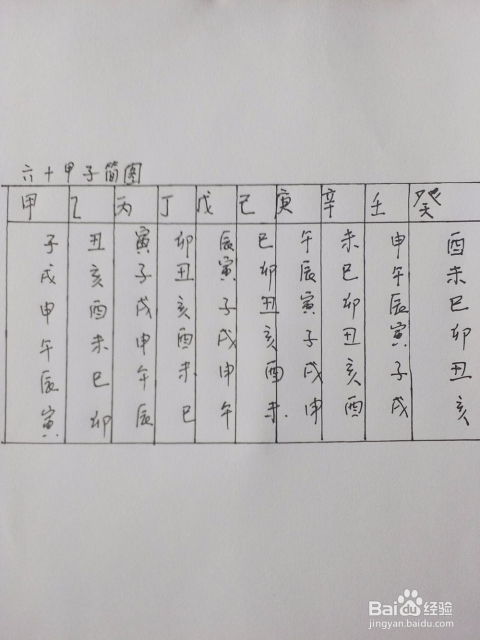 六十甲子简图
甲 乙 丙 丁 戊 己 庚 辛 壬 癸
子 丑 寅 卯 辰 巳 午 未 申 酉
戌 亥 子 丑 寅 卯 辰 巳 午 未
申 酉 戌 亥 子 丑 寅 卯 辰 巳
午 未 申 酉 戌 亥 子 丑 寅 卯
辰 巳 午 未 申 酉 戌 亥 子 丑
寅 卯 辰 巳 午 未 申 酉 戌 亥
Baidu经验
jingyan.baidu.com